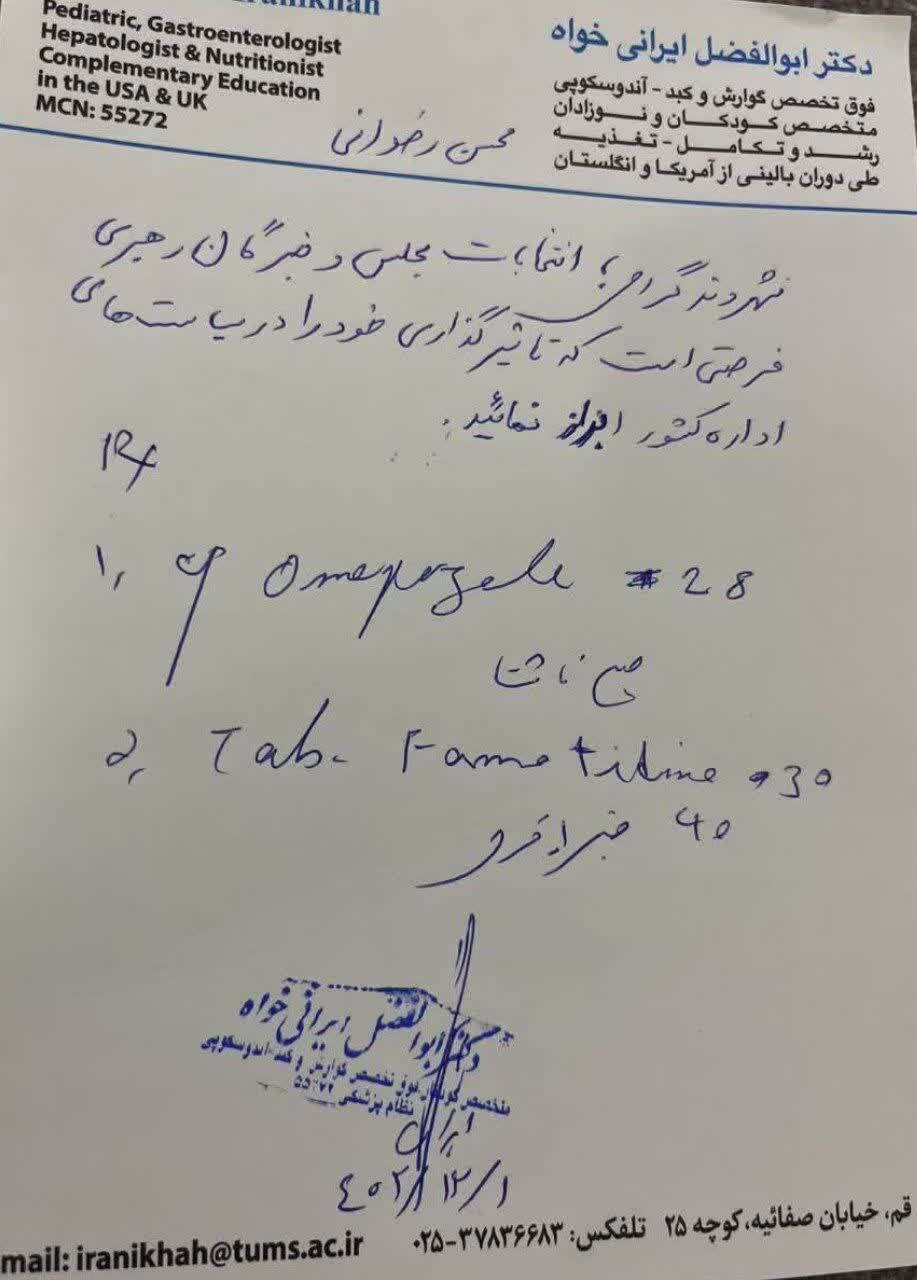 Pediatric, Gastroenterologist
Hepatologist & Nutritionist
Complementary Education
in the USA & UK
MCN: 55272
دکتر ابوالفضل ایرانی خواه
فوق تخصص گوارش و کبد - آندوسکوپی
متخصص کودکان و نوزادان
رشد و تکامل - تغذیه
طی دوران بالینی از آمریکا و انگلستان
محسن رضوانی
شهروند گرامی؛ انتخابات مجلس و خبرگان رهبری
فرصتی است که تاثیرگذاری خود را در سیاست‌های
اداره کشور ابراز نمائید.
Rx
1, Omeprazole #28
صبح ناشتا
2, Tab. Famotidine 30
40
دکتر ابوالفضل ایرانی خواه
متخصص کودکان فوق تخصص گوارش و کبد-آندوسکوپی
نظام پزشکی ۵۵۲۷۲
۴۰۲/۱۲/۱
قم، خیابان صفائیه، کوچه ۲۵ تلفکس: ۳۷۸۳۶۶۸۳-۰۲۵
mail: iranikhah@tums.ac.ir